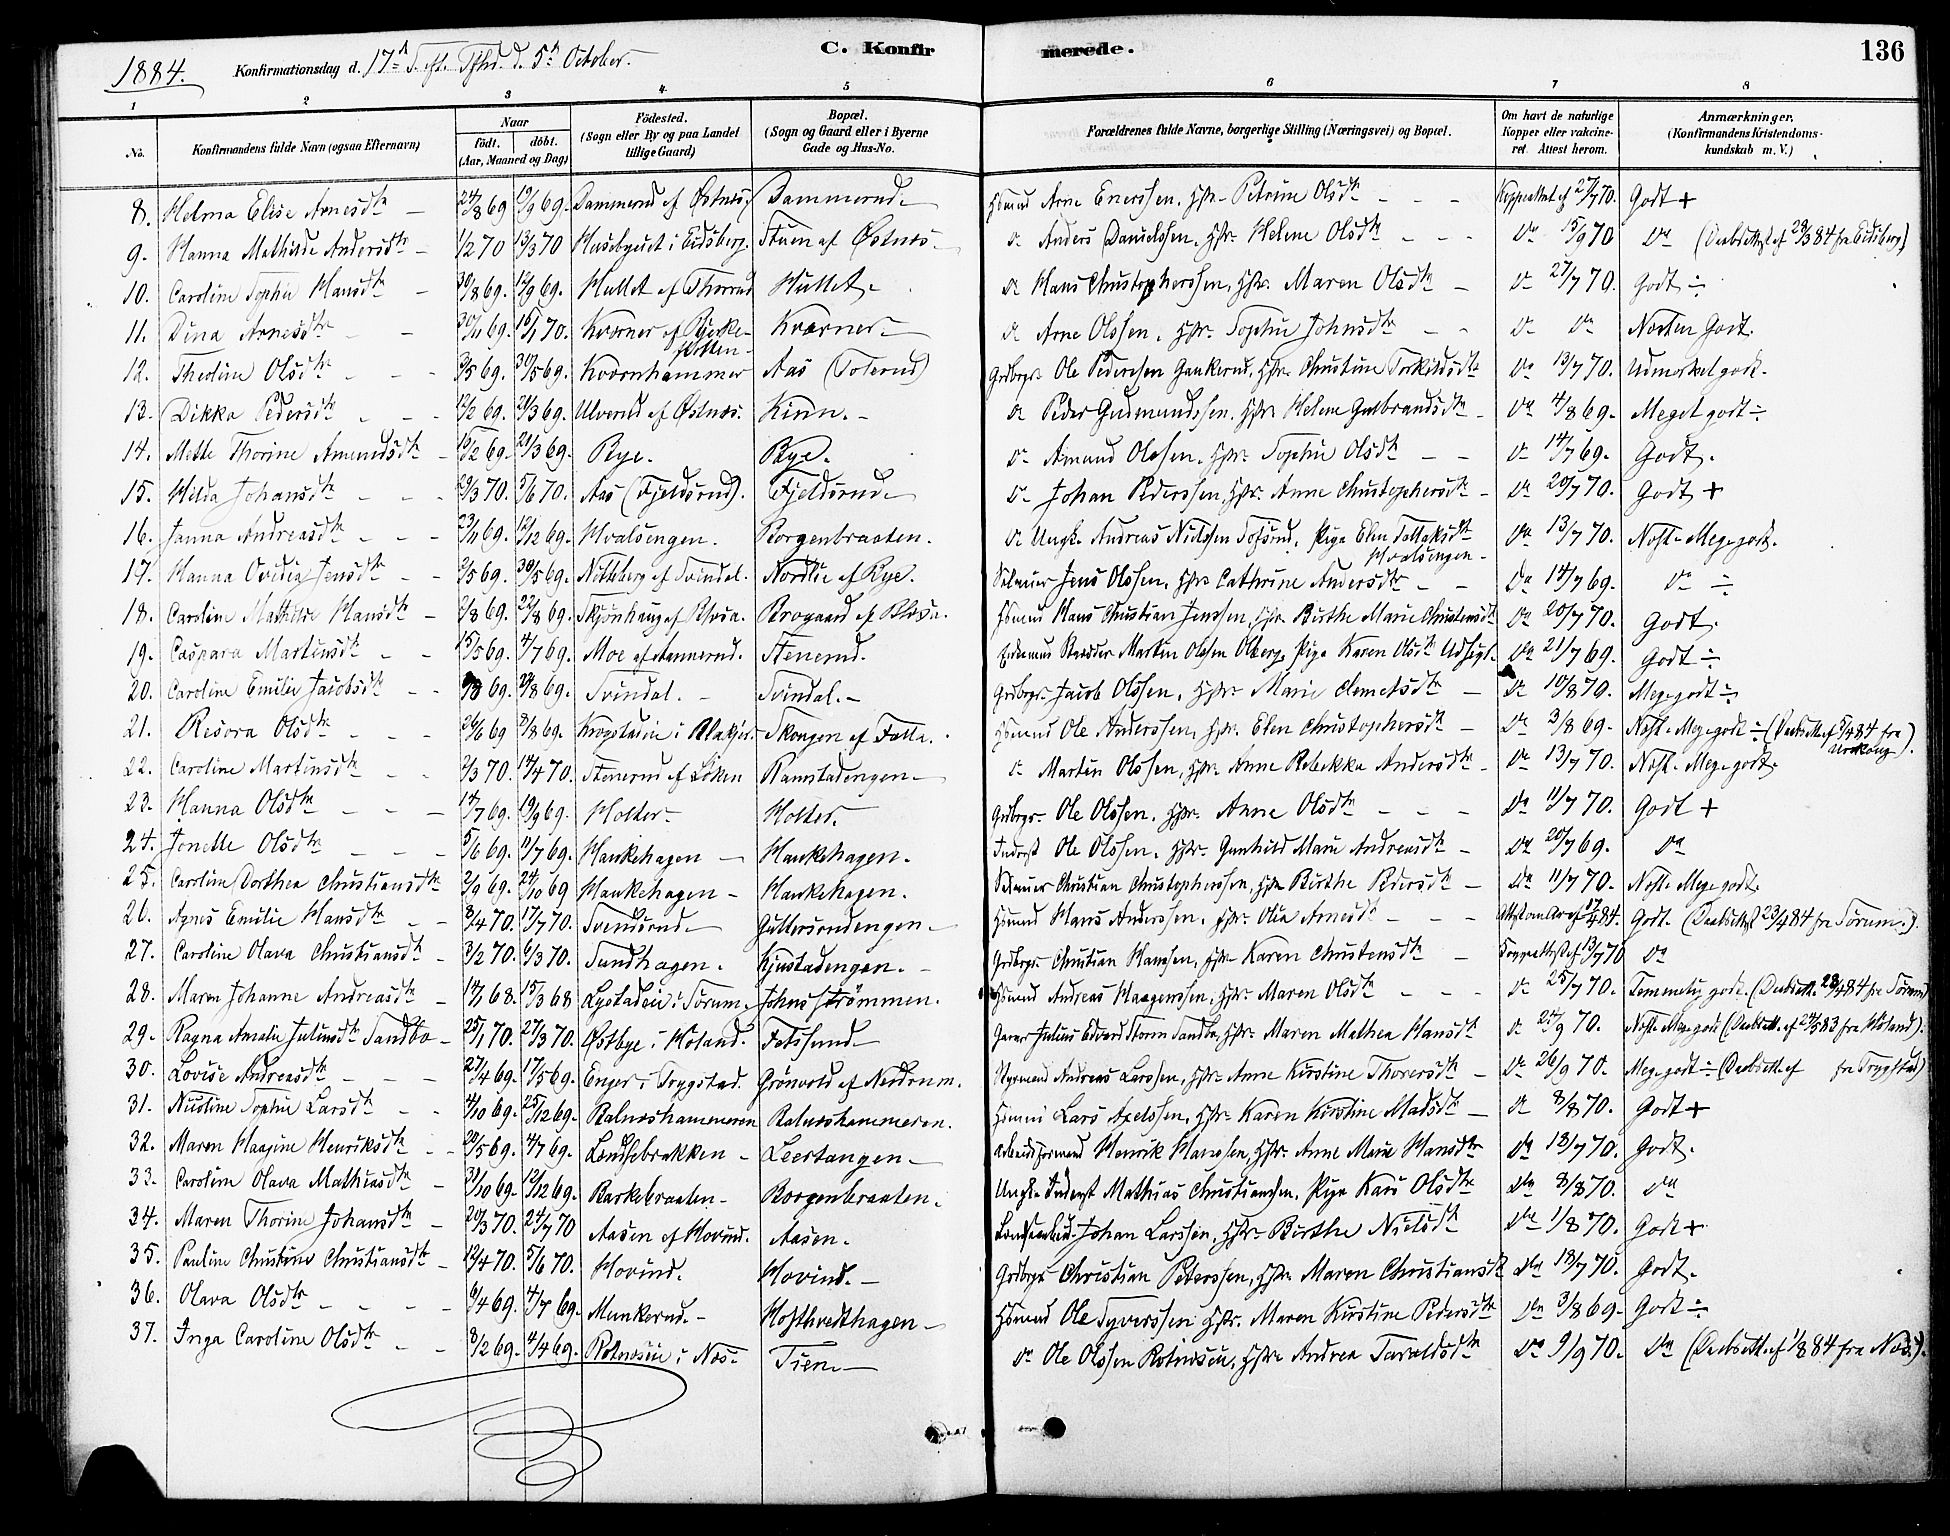 C. Konfirmerede.
136
1884. Konfirmationsdag d. 17de S. eft. Tfhd. d. 5te October.
1 2 3 4 5 6 7 8
No.
Konfirmandens fulde Navn (ogsaa Efternavn)
Naar født. døbt. (Aar, Maaned og Dag)
Fødested. (Sogn eller By og paa Landet tillige Gaard)
Bopæl. (Sogn og Gaard eller i Byerne Gade og Hus-No.
Forældrenes fulde Navne, borgerlige Stilling (Næringsvei) og Bopæl.
Om havt de naturlige Kopper eller vaccineret. Attest herom.
Anmærkninger. (Konfirmandens Kristendomskundskab m. V.)
8. Helma Elise Arnesdtr 24/8 69 19/9 69. Dammerud af Østnes, Dammerud. Hsmd Arne Enerssen, Hstr. Petrine Olsdtr Koppeattest af 27/7 70. Godt +
9. Hanna Mathilde Andersdtr 1/2 70 13/3 70 Husebyeiet i Eidsberg. Stuen af Østnes. do Anders Danielssen, Hstr. Helene Olsdtr do 15/9 70 do (Daabsattest af 28/3 84 fra Eidsberg)
10. Caroline Sophie Hansdtr 30/8 69. 12/9 69. Hullet af Thorrud Hullet. do Hans Christophersen, Hstr. Maren Olsdtr do 27/7 70. Godt ÷
11. Dina Arnesdtr 30/11 69. 16/1 70. Kværner af Bjerkeflotten Kværner do Arne Olssen, Hstr. Sophie Johnsdtr do do Næsten Godt.
12. Theoline Olsdtr 3/5 69. 30/5 69. Kværnhammer Aas (Toterud) Grdbrgr. Ole Pederssen Gankerud, Hstr. Christine Torkildsdtr do 13/7 70. Udmærket godt.
13. Dikka Pedersdtr 12/2 69. 21/3 69. Ulverud af Østnes. Kinn. do Peder Gudmundssen, Hstr Helene Gulbrandsdtr do 4/8 69. Meget godt ÷
14. Mette Thorine Amundsdtr 15/2 69. 21/3 69. Bye. Bye. do Amund Olssen, Hstr. Sophie Olsdtr do 14/7 69. Godt.
15. Hilda Johansdtr 29/3 70. 5/6 70. Aas (Fjeldsrud). Fjeldsrud do Johan Pederssen, Hstr. Anne Christophersdtr do 20/7 70. Godt +
16. Janna Andreasdtr 23/11 69. 12/12 69. Hvalsengen. Borgenbraaten. do Ungk. Andreas Nielssen Tofsrud, Pige Elen Tollaksdtr Hvalsengen do 13/7 70. Næst. Meg. godt.
17. Hanna Ovidia Jensdtr 2/5 69. 30/5 69. Nitteberg af Svindal. Nordlie af Bye. Selveier Jens Olssen, Hstr Cathrine Andersdtr do 14/7 69. do ÷
18. Caroline Mathilde Hansdtr 2/8 69. 22/8 69. Skjønhaug af Roven. Brogaard af Roven. Hsmd Hans Christian Jenssen, Hstr. Birthe Marie Christensdtr do 20/7 70. Godt.
19. Caspara Martinsdtr 15/5 69. 4/7 69. Moe af Hammerud. Stenerud. Martin Olssen Olberg, Pige Karen Olsdtr do 21/7 69. Godt ÷
20. Caroline Emilie Jacobsdtr 69. 22/8 69. Svindal. Svindal. Grdbrgr. Jacob Olssen, Hstr. Marie Clemetsdtr do 10/8 70. Meg. godt ÷
21. Risora Olsdtr 26/6 69 8/8 69. Krogstadie i Blakjer. Skongen af Falla. Hsmd Ole Anderssen, Hstr. Elen Christophersdtr do 3/8 69. Næst. Meg. godt ÷ (Daabsatt. af 5/4 84 fra Urskoug).
22. Caroline Martinsdtr 2/3 70. 14/4 70. Stenerud af Løken Ramstadengen do Martin Olssen, Hstr. Anne Rebekka Andersdtr do 13/7 70. Næst. Meg. godt.
23. Hanna Olsdtr 14/7 69. 19/9 69. Holter Holter. Grdbrgr. Ole Olssen, Hstr. Anne Olsdtr do 11/7 70. Godt +
24. Jonette Olsdtr 5/6 69. 11/7 69. Haukehagen Haukehagen. Inderst Ole Olssen, Hstr. Gunhild Marie Andreasdtr do 20/7 69. do
25. Caroline Dorthea Christiansdtr 2/9 69. 24/10 69 Haukehagen Haukehagen. Selveier Christian Christopherssen, Hstr Birthe Pedersdtr do 11/7 70. Næst. Meg. godt.
26. Agnes Emilie Hansdtr 8/4 70. 17/7 70. Svendsrud Guttersrudengen Hsmd Hans Anderssen, Hstr. Olia Arnesdtr 17/4 84. Godt. (Daabsattest 23/4 84 fra Sørum.)
27. Caroline Olava Christiansdtr 3/2 70. 6/3 70. Sundhagen. Hjustadengen. Grdbrgr. Christian Hanssen, Hstr. Karen Christensdtr Koppeattest af 13/7 70 do
28. Maren Johanne Andreasdtr 14/1 68. 15/3 68 Lystadeie i Sørum. Johnsstrømmen. Hsmd Andreas Haagenssen, Hstr. Maren Olsdtr do 25/7 70. Temmelig godt. (Daabsatt. 23/4 84 fra Sørum)
29. Ragna Amalie Juliusdtr Sandbo 25/1 70. 27/3 70. Østbye i Høland. Fetsund Garver Julius Edvard Storm Sandbo, Hstr. Maren Mathea Hansdtr do 27/9 70. Næst. Meg. godt (Daabsatt. af 24/5 83 fra Høland).
30. Lovise Andreasdtr 27/4 69. 17/5 69. Enger i Trygstad. Grønvold af Nordrum. Styrmand Andreas Larssen, Hstr. Anne Kirstine Thorersdtr do 26/9 70. Meg. godt ÷ (Daabsatt. af fra Trygstad)
31. Nicoline Sophie Larsdtr 4/10 69. 25/12 69. Balneshammeren Balneshammeren. Hsmd Lars Axelssen, Hstr. Karen Kirstine Madsdtr do 8/8 70. Godt +
32. Maren Haagine Henriksdtr 20/5 69. 4/7 69. Lundsebakken Leertangen Arbeidsformand Henrik Hanssen, Hstr. Anne Marie Hansdtr do 13/7 70. Godt.
33. Caroline Olava Mathiasdtr 31/10 69. 12/12 69. Barkebraaten Borgenbraaten. Ungk. Inderst Mathias Christianssen, Pige Kari Olsdtr do 8/8 70. do
34. Maren Thorine Johansdtr 20/3 70. 24/7 70 Aasen af Hovind. Aasen. Johan Larssen, Hstr. Birthe Nielsdtr do 1/8 70. Godt +
35. Pauline Christine Christiansdtr 12/4 70. 5/6 70. Hovind. Hovind. Grdbrgr. Christian Peterssen, Hstr. Maren Christiansdtr do 18/7 70. Godt.
36. Olava Olsdtr 6/4 69. 4/7 69. Munkerud. Hosthvedthagen Hsmd Ole Syverssen Hstr. Maren Kirstine Pedersdtr do 3/8 69. Godt ÷
37. Inga Caroline Olsdtr 8/2 69. 4/4 69. Rotnæseie i Næs. Tien do Ole Olssen Rotnæseie, Hstr Andrea Taraldsdtr do 9/9 70. do (Daabsatt. af 1/8 84 fra Næs).